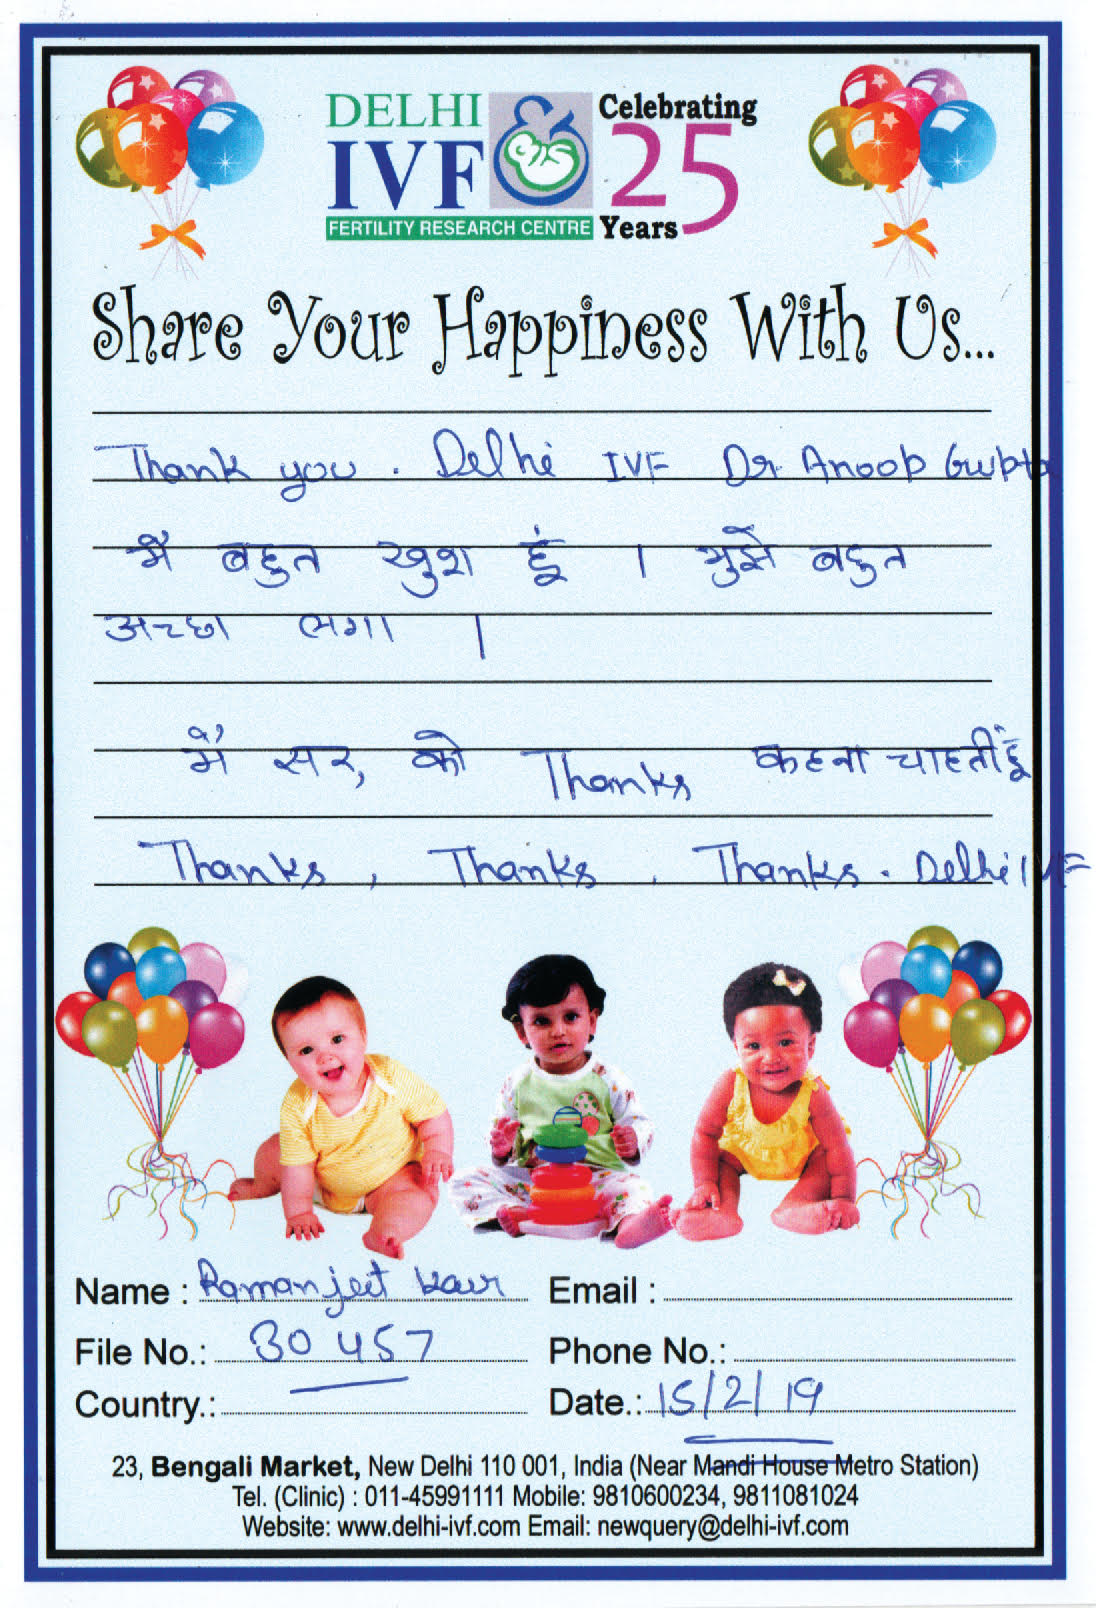 DELHI
IVF
FERTILITY RESEARCH CENTRE
Celebrating
25
Years
Share Your Happiness With Us...
Thank you. Delhi IVF Dr. Anoop Gupta
मैं बहुत खुश हूं । मुझे बहुत
अच्छा लगा ।
मैं सर, को Thanks कहना चाहती हूँ
Thanks, Thanks, Thanks. Delhi IVF
Name : Ramanjeet Kaur Email :
File No.: 30457 Phone No.:
Country.: Date.: 15/2/19
23, Bengali Market, New Delhi 110 001, India (Near Mandi House Metro Station)
Tel. (Clinic) : 011-45991111 Mobile: 9810600234, 9811081024
Website: www.delhi-ivf.com Email: newquery@delhi-ivf.com